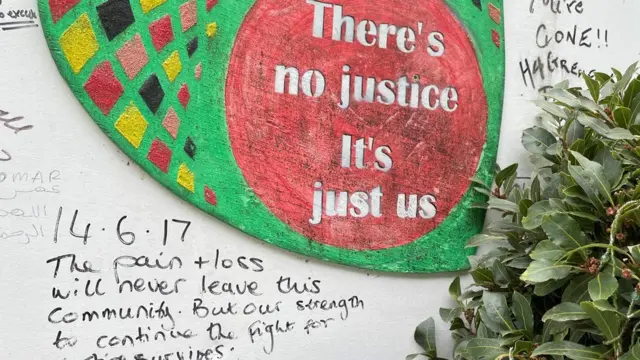 to exceed
There's
no justice
It's
just us
You're
GONE!!
OMAR
14.6.17
The pain + loss
will never leave this
community. But our strength
to continue the fight for
survives.